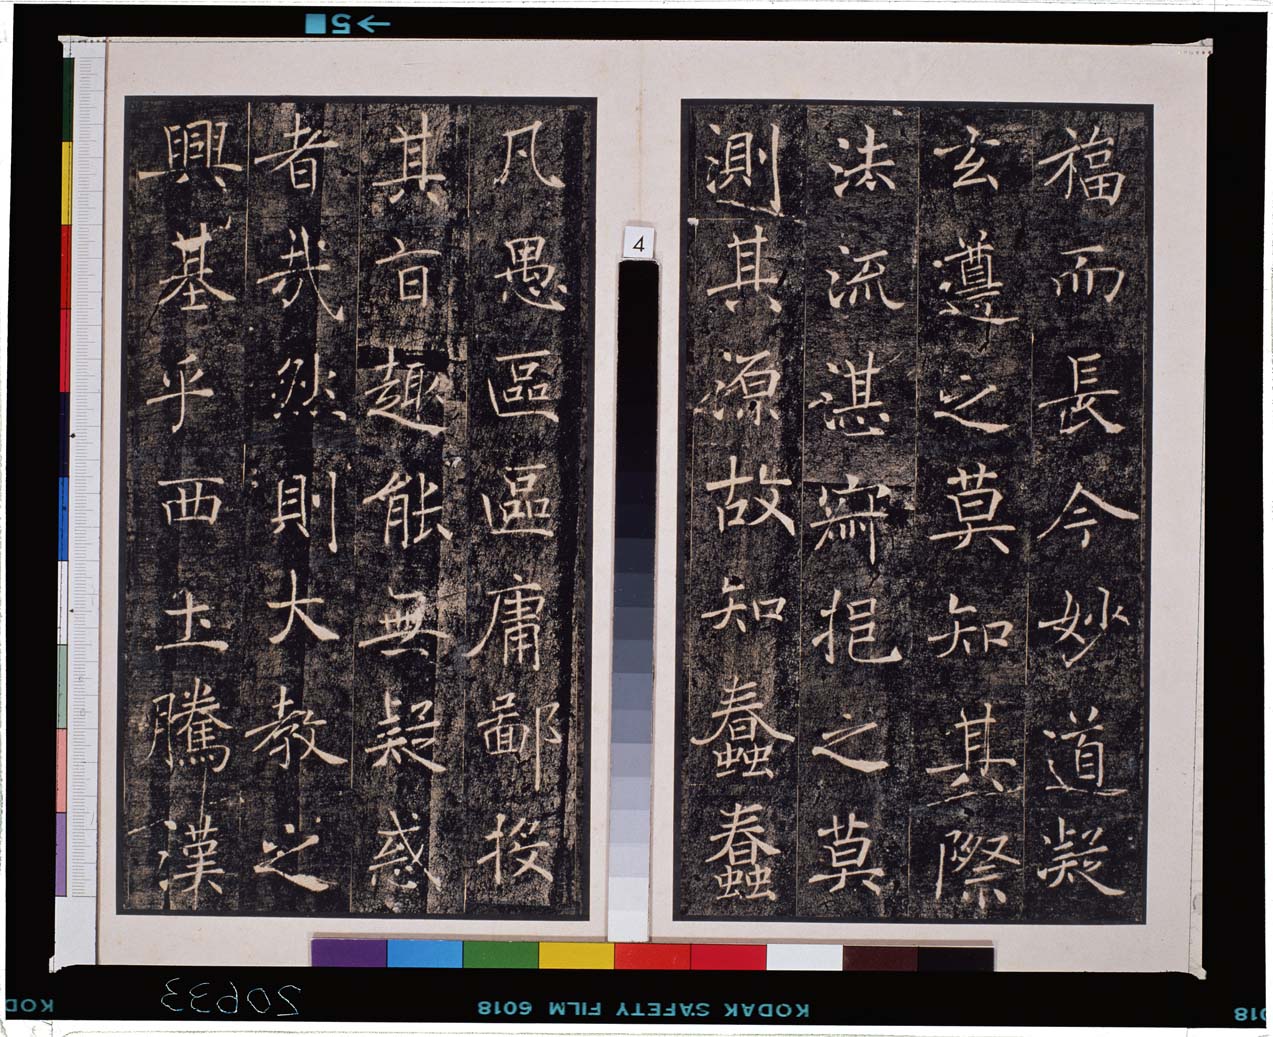 福而長今妙道凝
玄遵之莫知其際
法流湛寂挹之莫
測其源故知蠢蠢
凡愚區區庸鄙投
其旨趣能無疑惑
者哉然則大教之
興基乎西土騰漢
4
5
KODAK SAFETY FILM 6018
20633
KOD
018